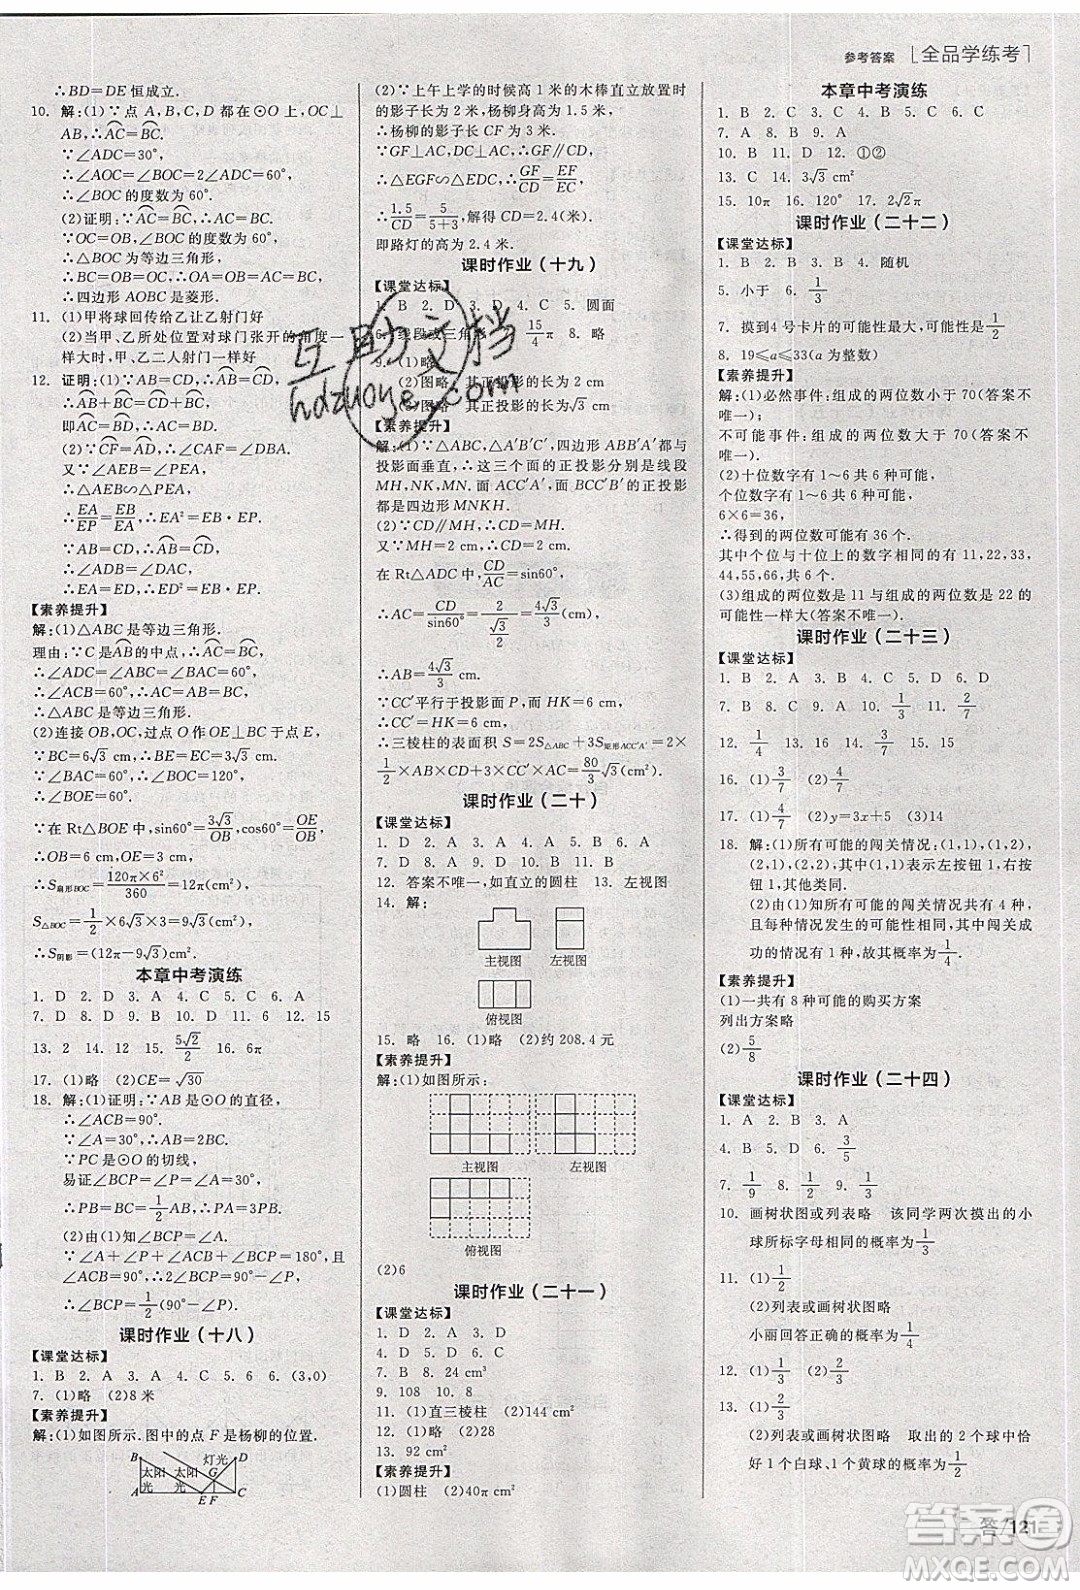 参考答案 [全品学练考]
∴BD=DE 恒成立.
10. 解:(1)∵点 A,B,C,D 都在⊙O 上,OC⊥AB,∴AC=BC.
∵∠ADC=30°,
∴∠AOC=∠BOC=2∠ADC=60°,
∴∠BOC 的度数为 60°.
(2)证明:∵AC=BC,∴AC=BC.
∵OC=OB,∠BOC=60°,
∴△BOC 为等边三角形,
∴BC=OB=OC,∴AO=AC=OB=BC,
∴四边形 AOBC 是菱形.
11. (1)甲将球回传给乙让乙射门好
(2)当甲、乙所处位置对球门张开的角度一样大时,甲、乙二人射门一样好
12. 证明:(1)∵AB=CD,∴AB=CD,
∴AB+BC=CD+BC,
即AC=BD,∴AC=BD.
(2)∵CF=AD,∴∠CAF=∠ABD.
又∵∠AEB=∠PEA,
∴△AEB∽△PEA,
∴EA/EP=EB/EA,∴EA²=EB·EP.
∵AB=CD,∴AB=CD,
∴∠ADB=∠DAC,
∴EA=ED,∴ED²=EB·EP.
【素养提升】
解:(1)△ABC 是等边三角形.
理由:∵C 是AB的中点,∴AC=BC,
∴∠ADC=∠ABC=∠BAC=60°,
∴∠ACB=60°,∴AC=AB=BC,
∴△ABC 是等边三角形.
(2)连接 OB,OC,过点 O 作 OE⊥BC 于点 E,
∵BC=6√3 cm,∴BE=EC=3√3 cm.
∵∠BAC=60°,∴∠BOC=120°,
∴∠BOE=60°.
∵在 Rt△BOE 中,sin60°=3√3/OB,cos60°=OE/OB,
∴OB=6 cm,OE=3 cm,
∴S扇形BOC=120π×6²/360=12π(cm²),
S△BOC=1/2×6√3×3=9√3(cm²),
∴S阴影=(12π-9√3)cm².
本章中考演练
1. D 2. D 3. A 4. C 5. C 6. A
7. D 8. D 9. B 10. D 11. 6 12. 15
13. 2 14. 12 15. 5√2/2 16. 6π
17. (1)略 (2)CE=√30
18. 解:(1)证明:∵AB 是⊙O 的直径,
∴∠ACB=90°.
∵∠A=30°,∴AB=2BC.
∵PC 是⊙O 的切线,
易证∠BCP=∠A=30°,
∴∠P=30°,∴PB=BC,
∴PB=BC=1/2AB,∴PA=3PB.
(2)由(1)知∠BCP=∠A.
∵∠A+∠P+∠ACB+∠BCP=180°,且∠ACB=90°,
∴2∠BCP=90°-∠P,
∴∠BCP=1/2(90°-∠P).
课时作业(十八)
【课堂达标】
1. B 2. B 3. A 4. C 5. C 6. (3,0)
7. (1)略 (2)8米
【素养提升】
解:(1)如图所示.图中的点 F 是杨柳的位置.
B 灯光 D
太阳 太阳 G
光 光
A E F C
(2)∵上午上学的时候高 1 米的木棒的影子长为 2 米,杨柳身高为 1.5 米,
∴杨柳的影子长 CF 为 3 米.
∵GF⊥AC,DC⊥AC,∴GF∥CD,
∴△EGF∽△EDC,∴GF/CD=EF/EC,
∴1.5/CD=5/(5+3),解得 CD=2.4(米).
即路灯的高为 2.4 米.
课时作业(十九)
【课堂达标】
1. B 2. D 3. D 4. C 5. 圆面
6. 线段或三角形 7. 15/4π 8. 略
9. (1)略
(2)图略 其正投影的长为 2 cm
(3)图略 其正投影的长为√3 cm
【素养提升】
解:(1)∵△ABC,△A′B′C′,四边形 ABB′A′都与投影面垂直,∴这三个面的正投影分别是线段 MH,NK,MN. 面 ACC′A′,面 BCC′B′的正投影都是四边形 MNKH.
(2)∵CD∥MH,∴CD=MH.
又∵MH=2√3 cm,∴CD=2√3 cm.
在 Rt△ADC 中,CD/AC=sin60°,
∴AC=CD/sin60°=2√3/(√3/2)=4√3/3(cm),
∴AB=4√3/3 cm.
∵CC′平行于投影面 P,∴HK=CC′,
∴CC′=MH=6 cm,
∴三棱柱的表面积 S=2S△ABC+3S矩形ACC′A′=2×1/2×2×4√3/3+3×6×4√3/3=80/3√3(cm²).
课时作业(二十)
【课堂达标】
1. A 2. C 3. A 4. A 5. B 6. A
7. D 8. D 9. A 10. B 11. B
12. 答案不唯一,如直立的圆柱 13. 左视图
14. 解:
主视图 左视图
俯视图
15. 略 16. (1)略 (2)约 208.4 元
【素养提升】
解:(1)如图所示:
主视图 左视图
俯视图
(2)6
课时作业(二十一)
【课堂达标】
1. D 2. A 3. C 4. D 5. C 6. C
7. C 8. D
9. 108 10. 8
11. (1)直三棱柱 (2)144 cm²
12. (1)略 (2)28
13. 92 cm²
【素养提升】
(1)圆柱 (2)40π cm² (3)10π cm²
本章中考演练
1. B 2. C 3. C 4. B 5. C 6. D
7. A 8. B 9. D
10. B 11. D 12. ①②
13. C 14. 3√3 cm²
15. 10π 16. 10π 17. 2√2π
课时作业(二十二)
【课堂达标】
1. C 2. B 3. B 4. 随机
5. 小于 6. 1/3
7. 摸到 4 号卡片的可能性最大,可能是1/2
8. 19≤a≤33(a 为整数)
【素养提升】
解:(1)必然事件:组成的两位数小于 70(答案不唯一);
不可能事件:组成的两位数大于 70(答案不唯一).
(2)十位数字有 1~6 共 6 种可能,
个位数字有 1~6 共 6 种可能,
6×6=36,
∴得到的两位数可能有 36 个.
其中个位与十位上的数字相同的有 11,22,33,44,55,66,共 6 个.
(3)组成的两位数是 11 与组成的两位数是 22 的可能性一样大(答案不唯一).
课时作业(二十三)
【课堂达标】
1. B 2. A 3. C 4. D 5. D 6. D
7. B 8. C 9. A 10. 1/3 11. 7/10
12. 1/4 13. 4 14. 3/7 15. 15
16. (1)3/7 (2)略
17. (1)4/7 (2)y=3x+5 (3)14
18. 解:(1)所有可能的闯关情况:(1,1),(1,2),(2,1),(2,2),(1,1)表示左按钮 1,右按钮 1,其他类推.
(2)由(1)知,所有可能的闯关情况共有 4 种,且每种情况发生的可能性相同,而闯关成功的情况有 1 种,故其概率为1/4.
【素养提升】
(1)一共有 8 种可能的购买方案
列出方案略
(2)5/8
课时作业(二十四)
【课堂达标】
1. A 2. B 3. A
4. B 5. D 6. 3/5
7. 1/9 8. 1/3 9. 1/3
10. 画树状图或列表略 该同学两次摸出的小球所标字母相同的概率为1/3
11. (1)1/2
(2)列表或画树状图略
小丽回答正确的概率为1/4
12. (1)1/3 (2)1/3
13. (1)2/3
(2)列表或画树状图略 取出的 2 个球中恰好 1 个白球、1 个黄球的概率为1/2
答/121
互助文档
hdzuoye.com
答案圈
MXQE.COM